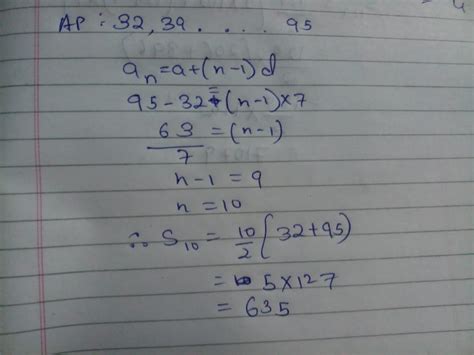 AP : 32, 39 . . . . . 95
aₙ = a + (n-1) d
95 - 32 = (n-1) × 7
63/7 = (n-1)
n-1 = 9
n = 10
∴ S₁₀ = 10/2 (32+95)
= 5 × 127
= 635